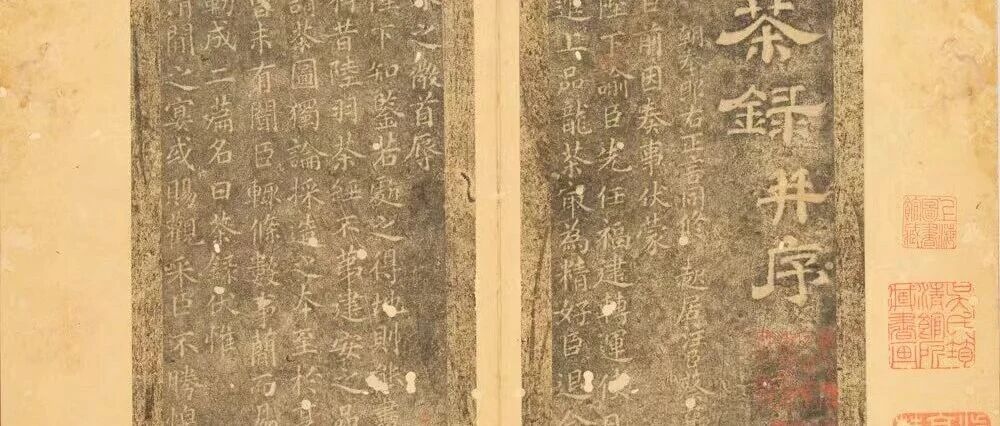 茶録并序
朝奉郎右正言同修起居
臣前因奏事伏蒙
陛下喻臣先任福建轉運使日
進上品龍茶冣為精好臣退念
木之微首辱
陛下知鑒若處之得地則能盡
材昔陸羽茶經不第建安之品
謂茶圖獨論採造之本至於
曾未有聞臣輒條數事簡而易
勒成二篇名曰茶録伏惟
清閒之宴或賜觀采臣不勝惶
上海圖書館藏